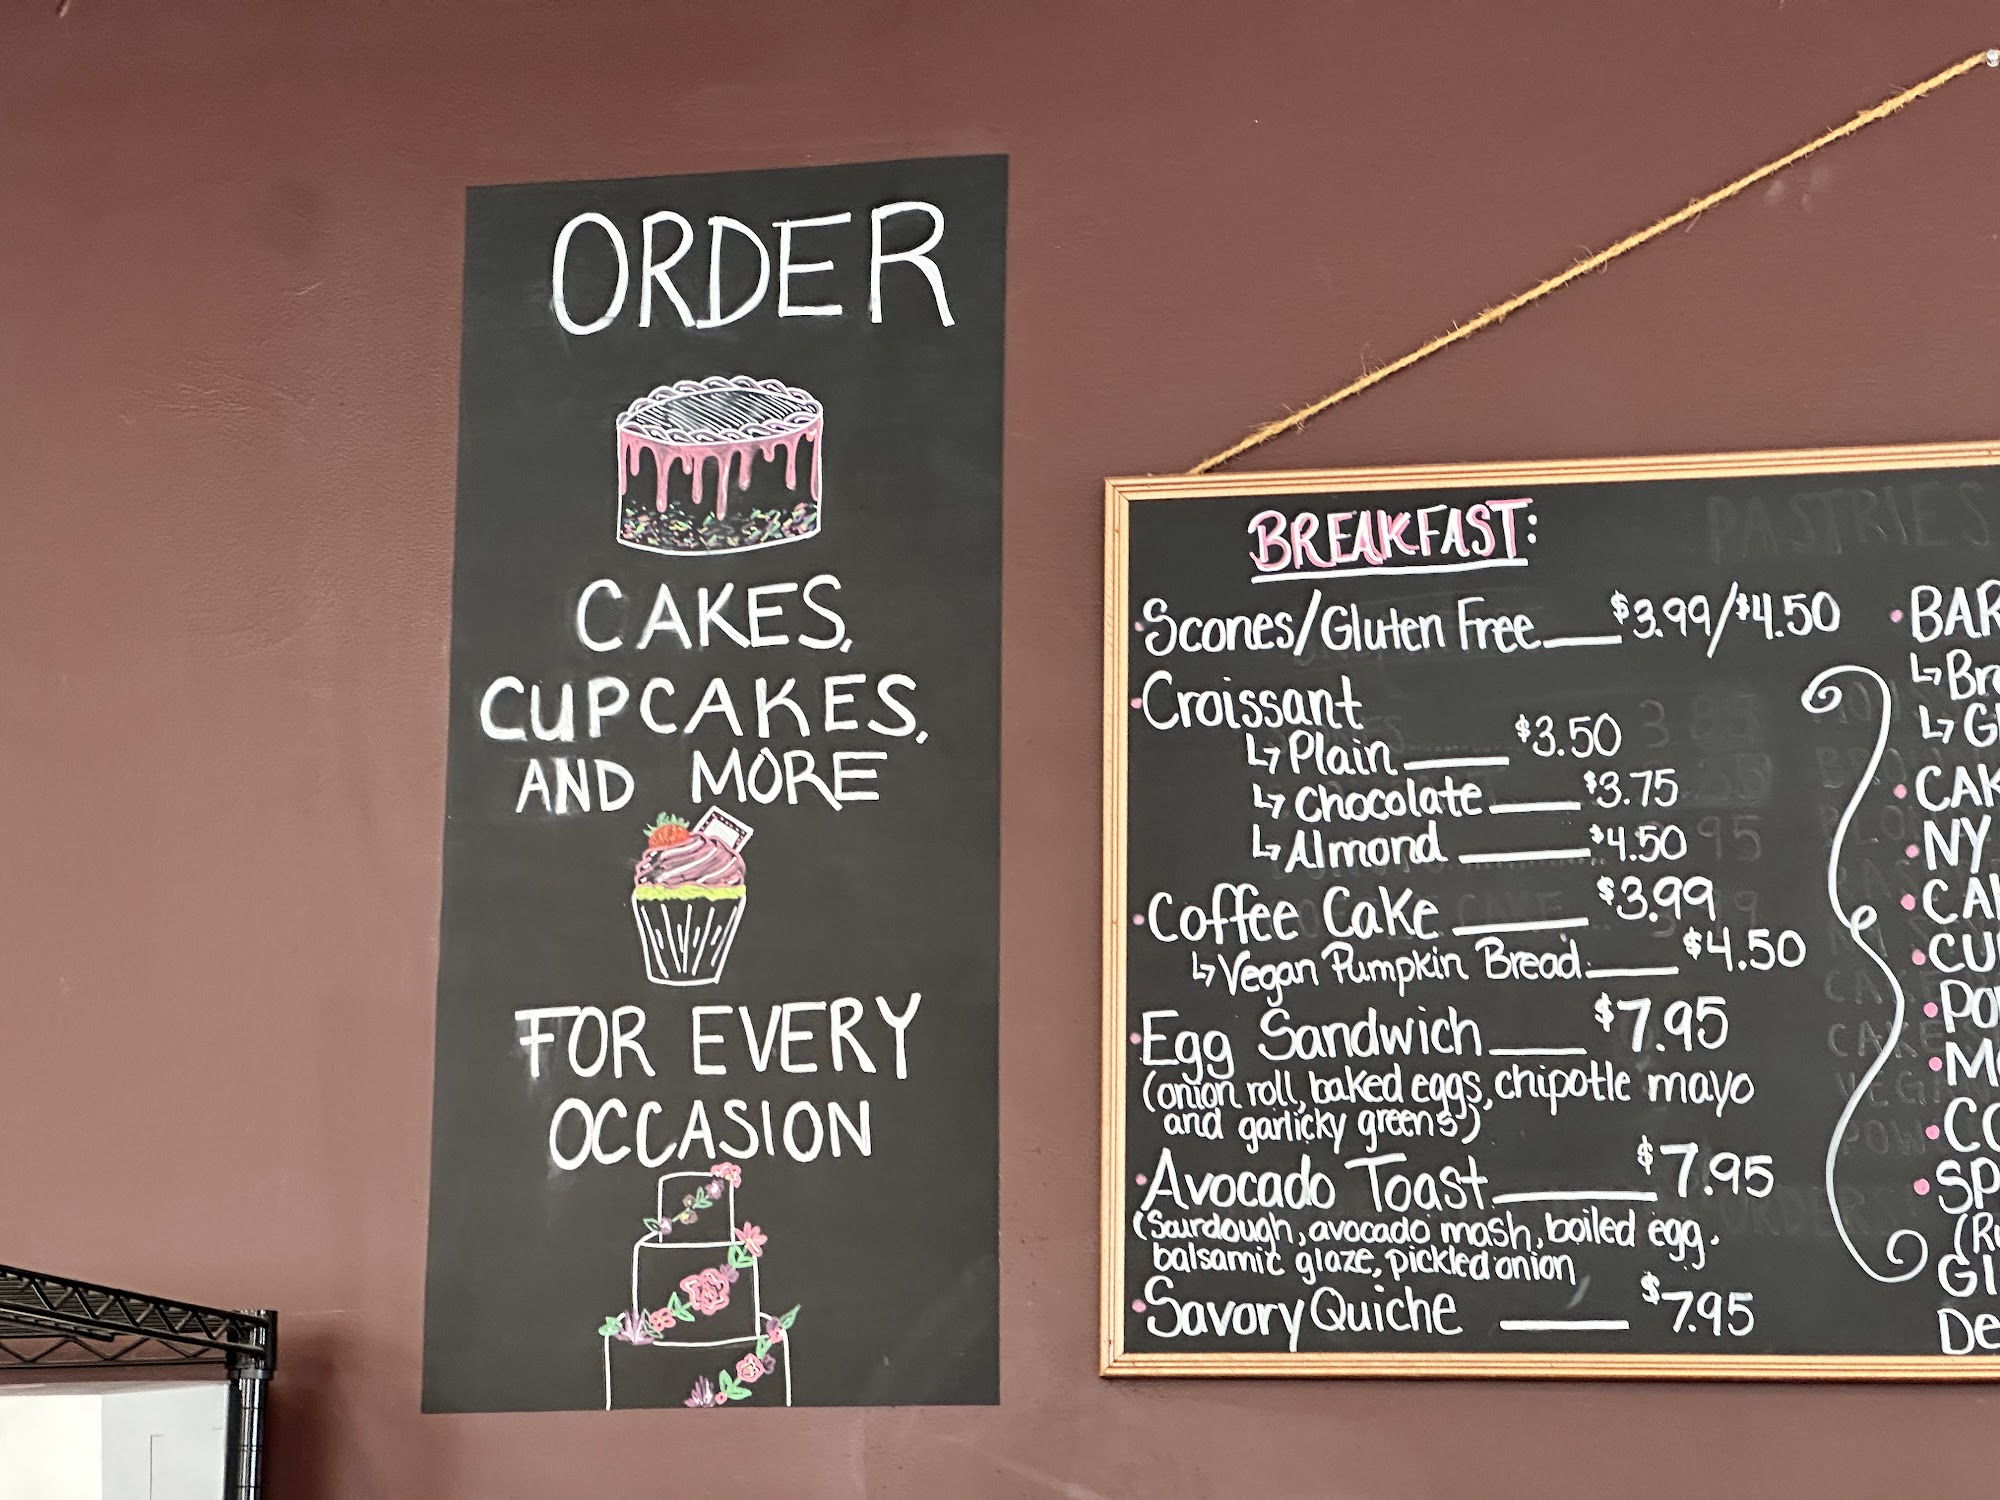 ORDER
CAKES,
CUPCAKES,
AND MORE
FOR EVERY
OCCASION
BREAKFAST:
Scones/Gluten Free $3.99/$4.50
Croissant
↳ Plain $3.50
↳ Chocolate $3.75
↳ Almond $4.50
Coffee Cake $3.99
↳ Vegan Pumpkin Bread $4.50
Egg Sandwich $7.95
(onion roll, baked eggs, chipotle mayo
and garlicky greens)
Avocado Toast $7.95
(Sourdough, avocado mash, boiled egg.
balsamic glaze, pickled onion
Savory Quiche $7.95
PASTRIES
BAR
NY